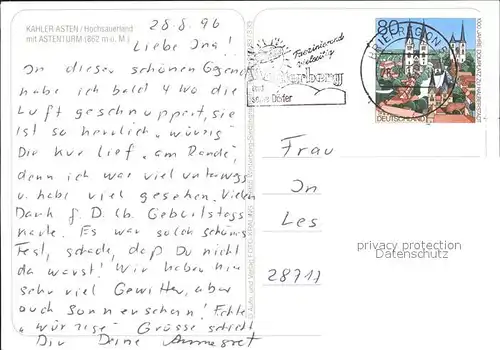 KAHLER ASTEN / Hochsauerland
mit ASTENTURM (862 m ü. M.)
28.8.96
Liebe Ina!
In dieser schönen Gegend
habe ich bald 4 Wo die
Luft geschnuppert, sie
ist so herrlich "würzig"
Die Kur lief "am Rande",
denn ich war viel unterwegs
u. habe viel gesehen. Vielen
Dank f. D. lb. Geburtstags
karte. Es war solch schönes
Fest, schade, daß Du nicht
da warst! Wir haben hier
sehr viel Gewitter, aber
auch Sonnenschein! Echte
"würzige" Grüsse schickt
Dir Deine Annegret
Faszinierend
vielseitig
und
seine Dörfer
BRIEFREGION
80
DEUTSCHLAND
Frau
In
Les
28717
privacy protection
Datenschutz